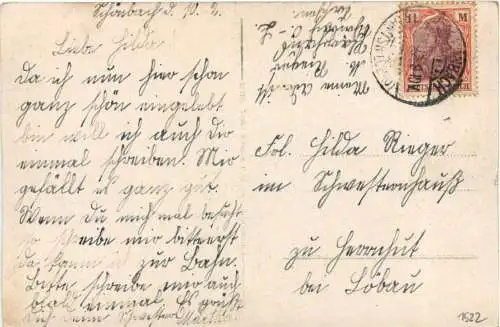 Schönbach d. 10. 2.
Liebe Hilda
Da ich nun hier schon
ganz schön eingelebt
bin will ich auch dir
einmal schreiben. Mir
gefällt es ganz gut.
Wenn Du mich mal besuchst
so schreibe mir bitte erst
da komm ich zur Bahn.
Bitte schreibe mir auch
bald einmal. Es grüßt
Dich deine Schwester Martha
Meine Adresse
M. Rieger
Frl. Hilda Rieger
im Schwesternhauß
zu Herrnhut
bei Löbau
1¼ M
1522